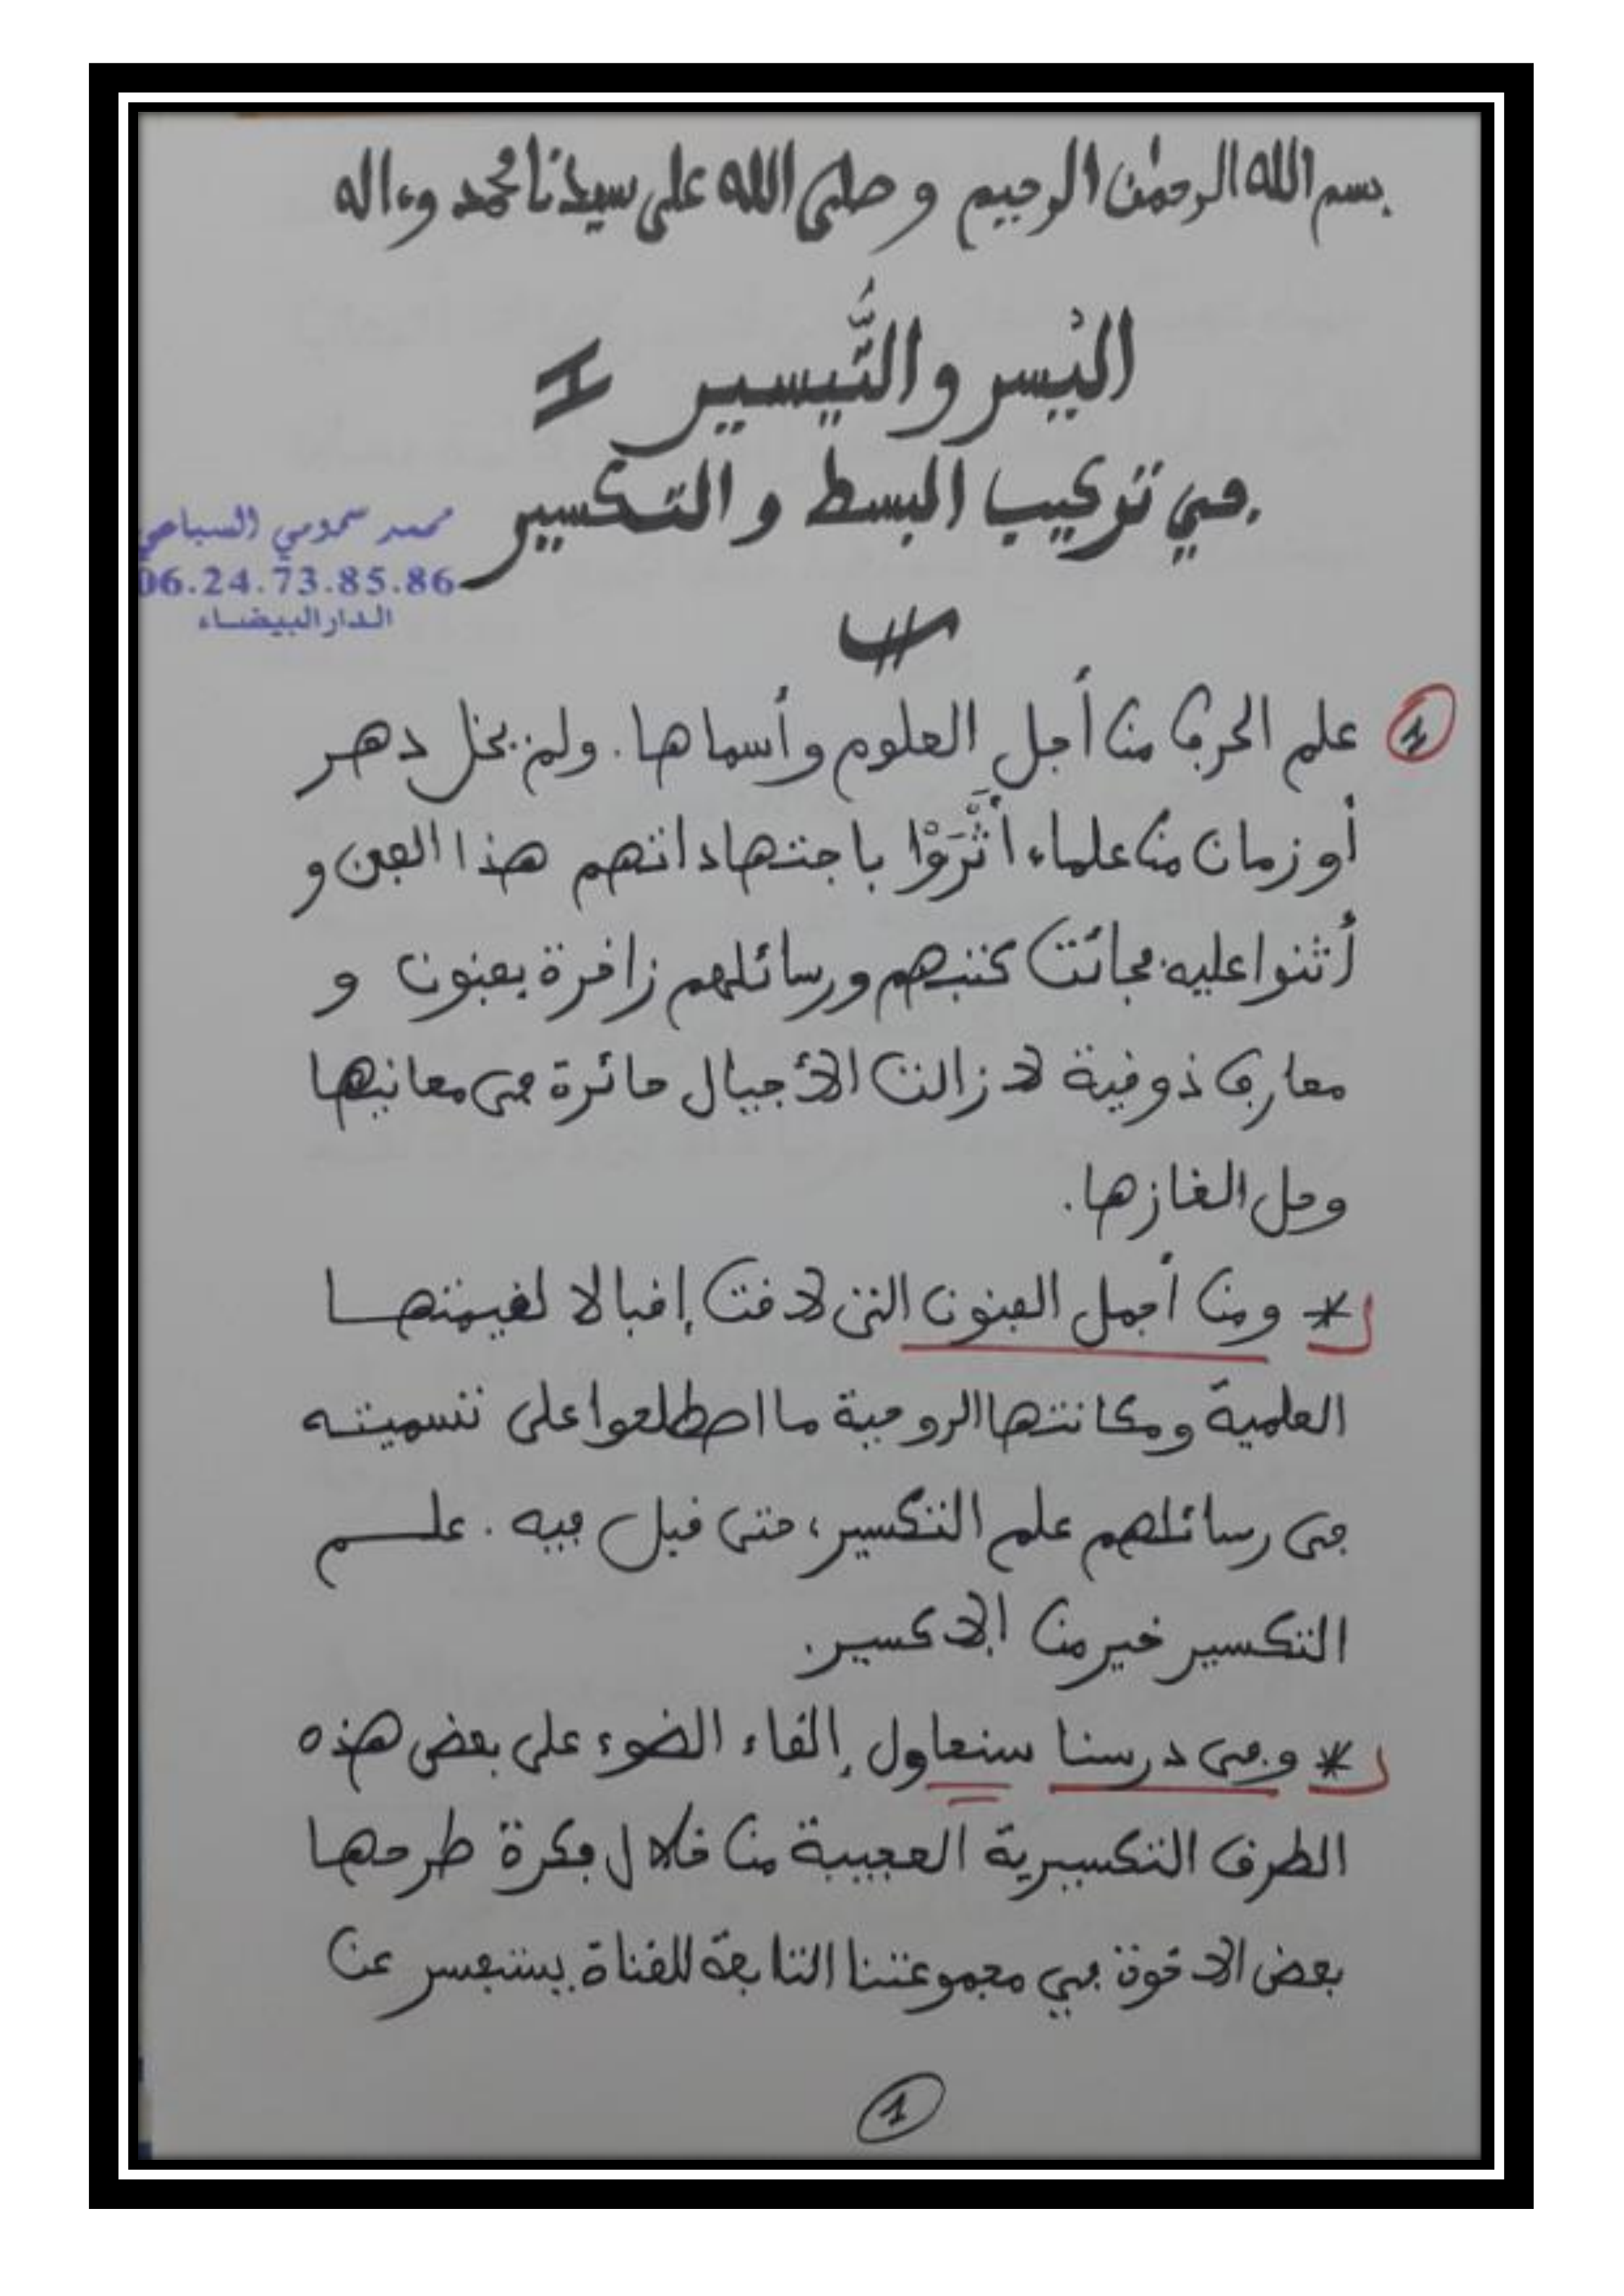 بسم الله الرحمن الرحيم وصلى الله على سيدنا محمد وءاله
اليُسر والتَّيسير I
في تركيب البسط والتكسير
محمد سموسي السباعي
06.24.73.85.86
الدار البيضاء
1 علم الحرف من أجل العلوم وأسماها. ولم يخل دهر
أو زمان من علماء أَثْرَوْا باجتهاداتهم هذا الفن و
أثنوا عليه فجائت كتبهم ورسائلهم زاخرة بفنون و
معارف ذوقية لا زالت الأجيال حائرة في معانيها
وحل الغازها.
* ومن أجمل الفنون التي لاقت إقبالا لقيمتها
العلمية ومكانتها الروحية ما اصطلحوا على تسميته
في رسائلهم علم التكسير، حتى قيل فيه. علم
التكسير خير من الإكسير.
* وفي درسنا سنحاول إلقاء الضوء على بعض هذه
الطرق التكسيرية العجيبة من خلال فكرة طرحها
بعض الاخوة في مجموعتنا التابعة للقناة يستفسر عن
1